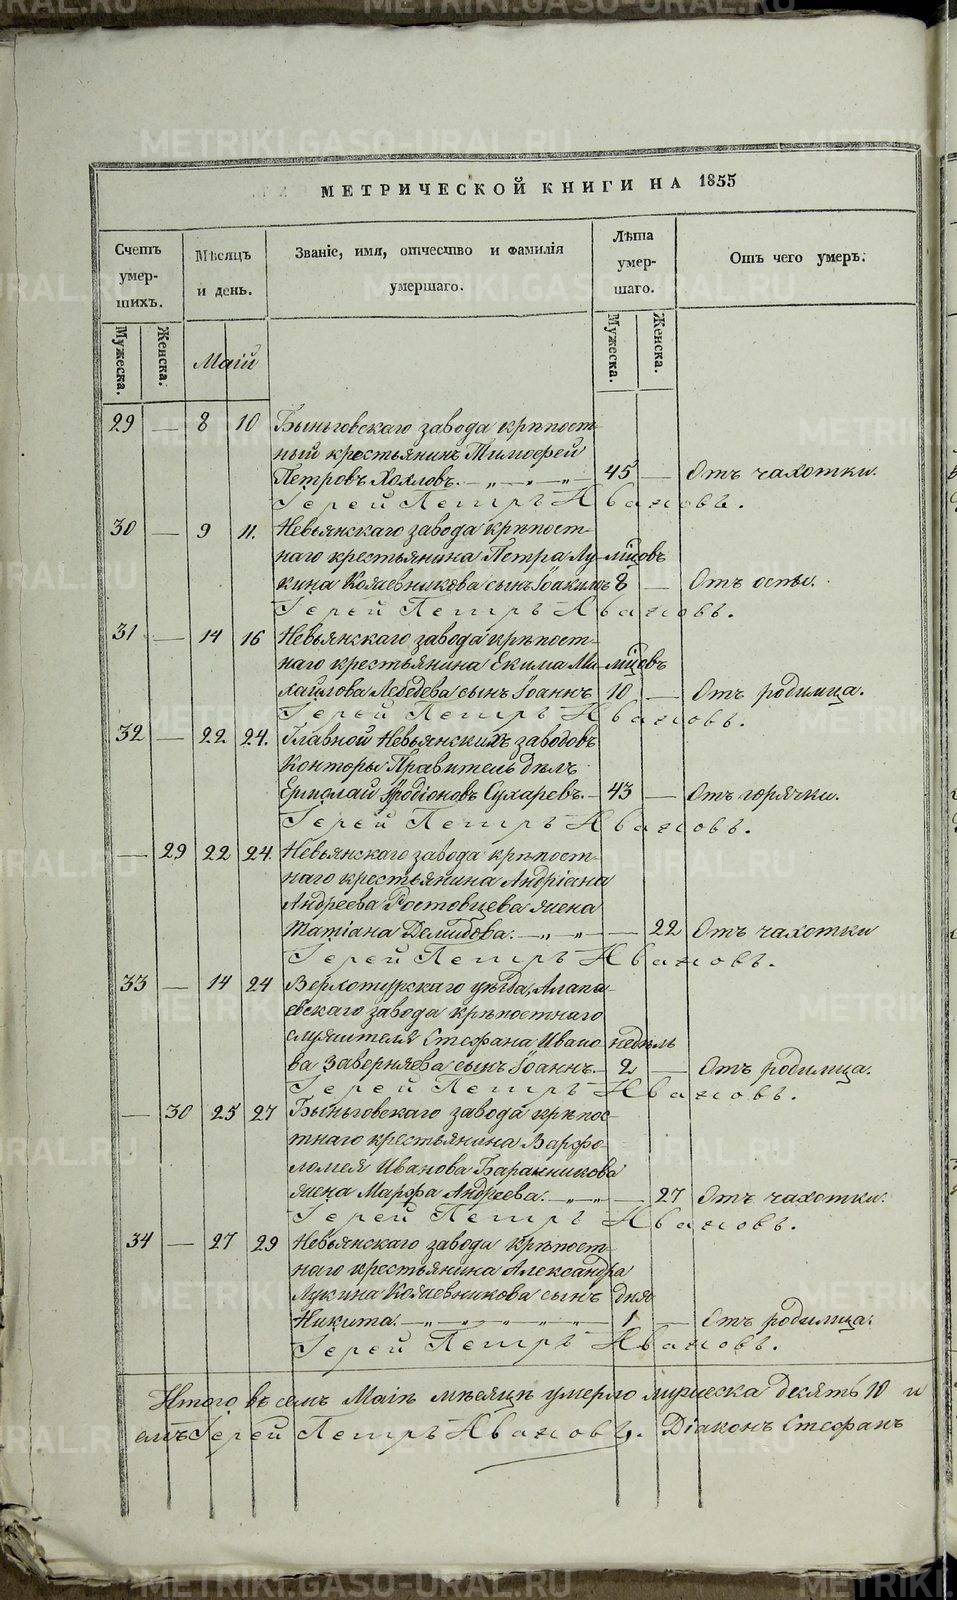 METRIKI.GASO-URAL.RU
МЕТРИЧЕСКОЙ КНИГИ НА 1855
Счетъ умер-шихъ. Мѣсяцъ и день. Званіе, имя, отчество и фамилія умершаго. Лѣта умер-шаго. Отъ чего умеръ.
Мужеска. Женска. Маій Мужеска. Женска.
29 — 8 10 Быньговскаго завода крѣпост-
ный крестьянинъ Тимофей
Петровъ Хохловъ. — „ — „ — „ — 45 — Отъ чахотки.
Іерей Петръ Ивановъ.
30 — 9 11. Невьянскаго завода крѣпост-
наго крестьянина Петра Лу- мѣсяцовъ
кина Кожевникова сынъ Іоакимъ 8 — Отъ оспы.
Іерей Петръ Ивановъ.
31 — 14 16 Невьянскаго завода крѣпост-
наго крестьянина Екима Ми- мѣсяцовъ
хайлова Лебедева сынъ Іоаннъ 10 — Отъ родимца.
Іерей Петръ Ивановъ.
32 — 22 24. Главной Невьянскихъ заводовъ
Конторы Правитель дѣлъ
Ермолай Родіоновъ Сухаревъ. — 43 — Отъ горячки.
Іерей Петръ Ивановъ.
— 29 22 24. Невьянскаго завода крѣпост-
наго крестьянина Андріана
Андреева Ростовцева жена
Татіана Демидова. — „ — „ — — 22 Отъ чахотки
Іерей Петръ Ивановъ.
33 — 14 24 Верхотурскаго уѣзда, Алапа-
евскаго завода крѣпостнаго
служителя Стефана Ивано недѣль
ва Заверняева сынъ Іоаннъ. — 2 — Отъ родимца.
Іерей Петръ Ивановъ.
— 30 25 27 Быньговскаго завода крѣпос-
тнаго крестьянина Варфо-
ломея Иванова Баранникова
жена Марфа Андреева. — „ — „ — — 27 Отъ чахотки.
Іерей Петръ Ивановъ.
34 — 27 29 Невьянскаго завода крѣпост-
наго крестьянина Александра
Лукина Кожевникова сынъ дня
Никита. — „ „ „ „ „ — 1 — Отъ родимца.
Іерей Петръ Ивановъ.
Итого въ семъ Маіѣ мѣсяцѣ умерло мужеска десять 10 и
Іерей Петръ Ивановъ. Діаконъ Стефанъ